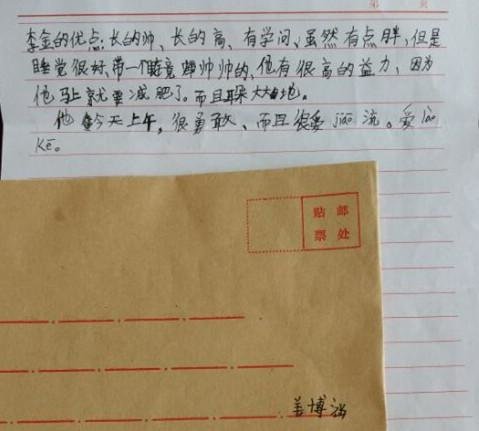 第 页
李金的优点:长的帅、长的高、有学问、虽然有点胖,但是
睡觉很好,带一个眼竟帅帅的、他有很高的益力、因为
他马上就要减肥了。而且
他今天上午,很勇敢、而且很爱jiao流。爱
Kē。
贴 邮
票 处
姜博